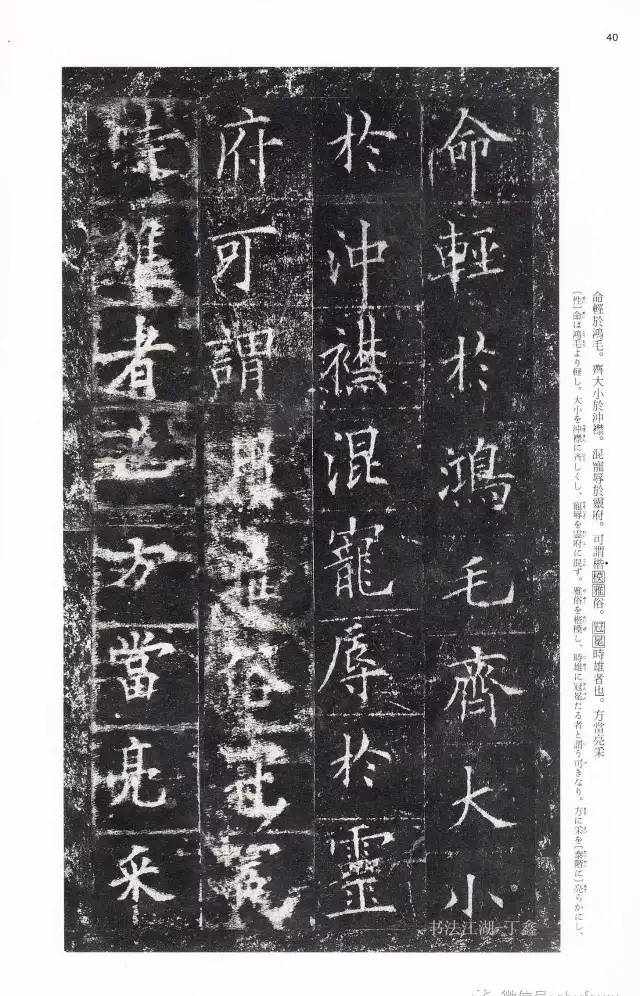 40
命輕於鴻毛齊大小
於沖襟混寵辱於靈
府可謂俗
雄者也方當亮采
命輕於鴻毛。齊大小於沖襟。混寵辱於靈府。可謂楷模雅俗。冠冕時雄者也。方當亮采
〔性〕命は鴻毛より輕し。大小を沖襟に齊しくし、寵辱を靈府に混ず。雅俗を楷模し、時雄に冠冕たる者と謂う可きなり。方に采を〔泰階に〕亮らかにし、
书法江湖-丁鑫